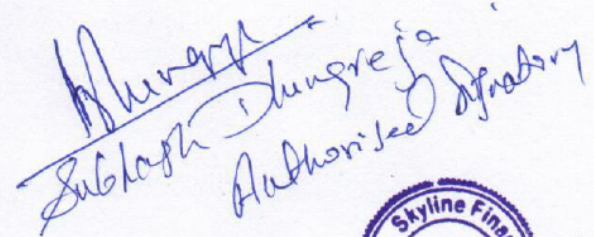 Subhash Dhingreja
Authorised Signatory
Skyline Fina